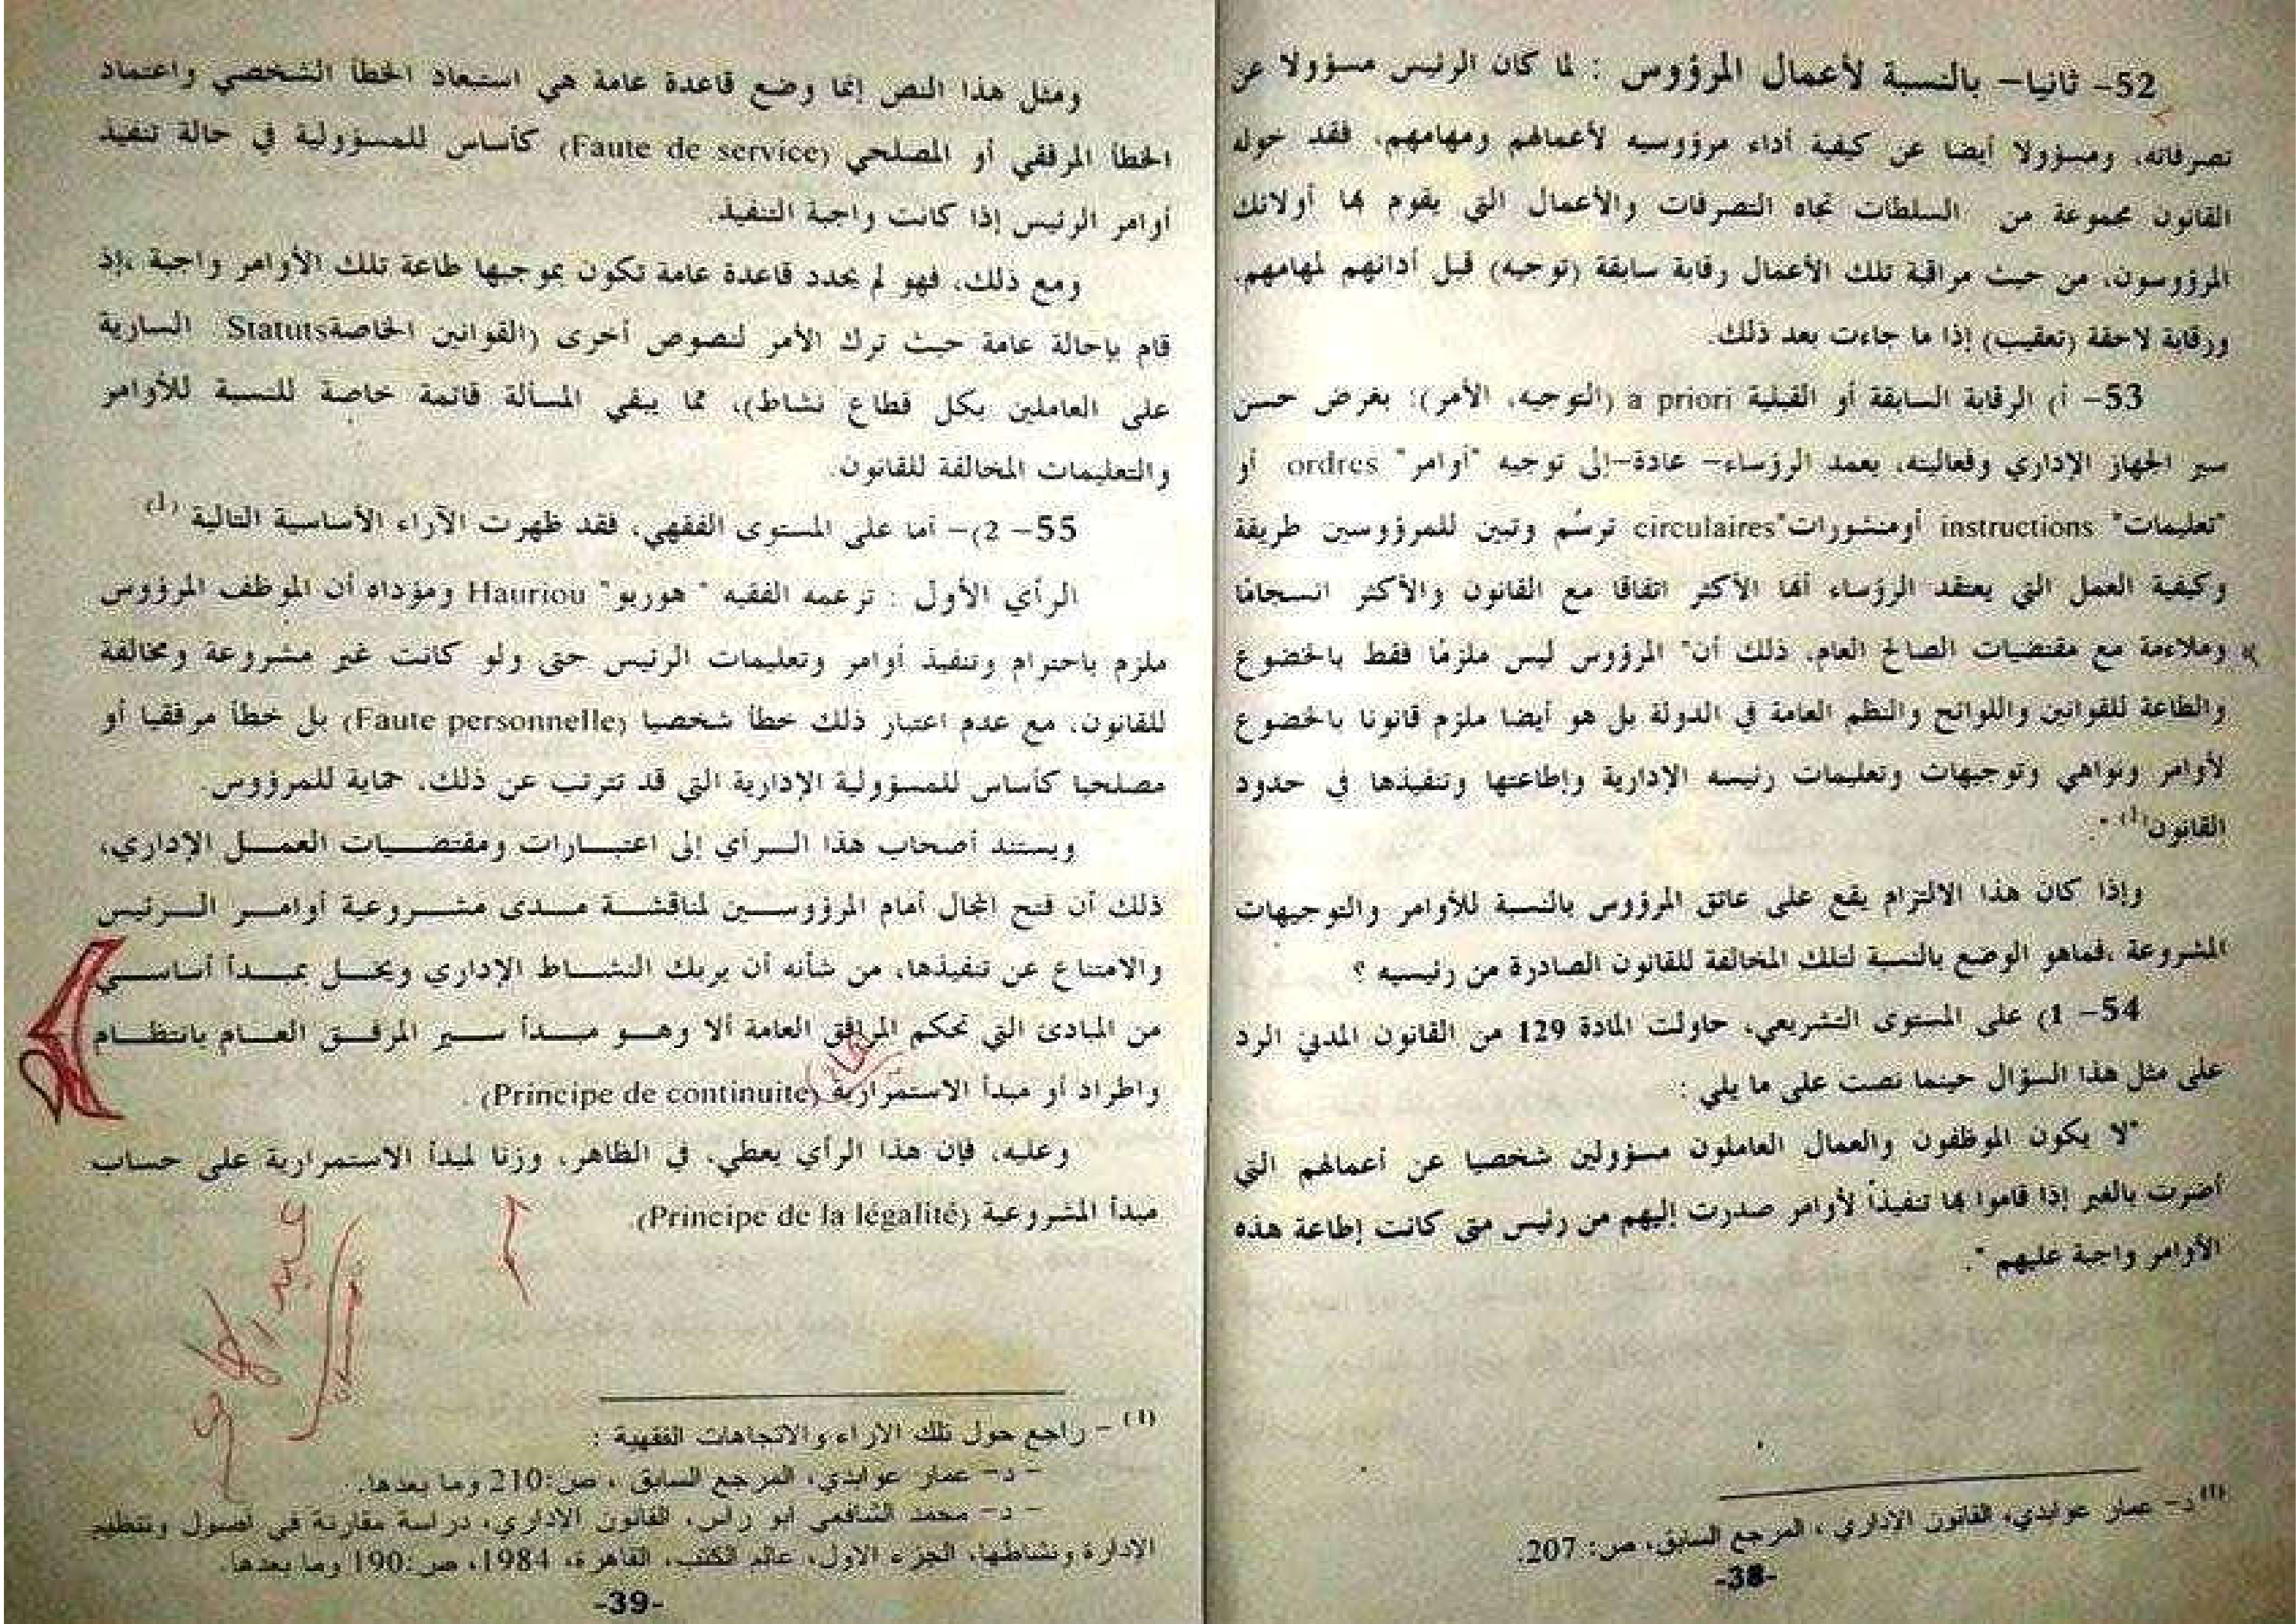 52- ثانيا- بالنسبة لأعمال المرؤوس : لما كان الرئيس مسؤولا عن
تصرفاته، ومسؤولا أيضا عن كيفية أداء مرؤوسيه لأعمالهم ومهامهم، فقد خوله
القانون مجموعة من السلطات تجاه التصرفات والأعمال التي يقوم بها أولائك
المرؤوسون، من حيث مراقبة تلك الأعمال رقابة سابقة (توجيه) قبل أدائهم لمهامهم،
ورقابة لاحقة (تعقيب) إذا ما جاءت بعد ذلك.
53- أ) الرقابة السابقة أو القبلية a priori (التوجيه، الأمر): بغرض حسن
سير الجهاز الإداري وفعاليته، يعمد الرؤساء- عادة-إلى توجيه "أوامر" ordres أو
"تعليمات" instructions أومنشورات"circulaires ترسُم وتبين للمرؤوسين طريقة
وكيفية العمل التي يعتقد الرؤساء أنها الأكثر اتفاقا مع القانون والأكثر انسجامًا
وملاءمة مع مقتضيات الصالح العام، ذلك أن" المرؤوس ليس ملزمًا فقط بالخضوع
والطاعة للقوانين واللوائح والنظم العامة في الدولة بل هو أيضا ملزم قانونا بالخضوع
لأوامر ونواهي وتوجيهات وتعليمات رئيسه الإدارية وإطاعتها وتنفيذها في حدود
القانون(1)".
وإذا كان هذا الالتزام يقع على عاتق المرؤوس بالنسبة للأوامر والتوجيهات
المشروعة ،فماهو الوضع بالنسبة لتلك المخالفة للقانون الصادرة من رئيسيه ؟
54- 1) على المستوى التشريعي، حاولت المادة 129 من القانون المدني الرد
على مثل هذا السؤال حينما نصت على ما يلي :
"لا يكون الموظفون والعمال العاملون مسؤولين شخصيا عن أعمالهم التي
أضرت بالغير إذا قاموا بها تنفيذاً لأوامر صدرت إليهم من رئيس متى كانت إطاعة هذه
الأوامر واجبة عليهم ".
(1) د- عمار عوابدي، القانون الإداري ، المرجع السابق، ص: 207.
-38-
ومثل هذا النص إنما وضع قاعدة عامة هي استبعاد الخطأ الشخصي واعتماد
الخطأ المرفقي أو المصلحي (Faute de service) كأساس للمسؤولية في حالة تنفيذ
أوامر الرئيس إذا كانت واجبة التنفيذ.
ومع ذلك، فهو لم يحدد قاعدة عامة تكون بموجبها طاعة تلك الأوامر واجبة ،إذ
قام بإحالة عامة حيث ترك الأمر لنصوص أخرى (القوانين الخاصةStatuts السارية
على العاملين بكل قطاع نشاط)، مما يبقي المسألة قائمة خاصة للنسبة للأوامر
والتعليمات المخالفة للقانون.
55- 2)- أما على المستوى الفقهي، فقد ظهرت الآراء الأساسية التالية (1)
الرأي الأول : تزعمه الفقيه " هوريو" Hauriou ومؤداه أن الموظف المرؤوس
ملزم باحترام وتنفيذ أوامر وتعليمات الرئيس حتى ولو كانت غير مشروعة ومخالفة
للقانون، مع عدم اعتبار ذلك خطأ شخصيا (Faute personnelle) بل خطأ مرفقيا أو
مصلحيا كأساس للمسؤولية الإدارية التي قد تترتب عن ذلك، حماية للمرؤوس.
ويستند أصحاب هذا الرأي إلى اعتبارات ومقتضيات العمل الإداري،
ذلك أن فتح المجال أمام المرؤوسين لمناقشة مدى مشروعية أوامر الرئيس
والامتناع عن تنفيذها، من شأنه أن يربك النشاط الإداري ويخل بمبدأ أساسي
من المبادئ التي تحكم المرافق العامة ألا وهو مبدأ سير المرفق العام بانتظام
واطراد أو مبدأ الاستمرارية (Principe de continuite) .
وعليه، فإن هذا الرأي يعطي، في الظاهر، وزنا لمبدأ الاستمرارية على حساب
مبدأ المشروعية (Principe de la légalité).
(1) - راجع حول تلك الاراء والاتجاهات الفقهية :
- د- عمار عوابدي، المرجع السابق ، ص:210 وما بعدها.
- د- محمد الشافعي ابو راس، القانون الاداري، دراسة مقارنة في اصول وتنظيم
الإدارة ونشاطها، الجزء الاول، عالم الكتب، القاهرة، 1984، ص:190 وما بعدها.
-39-